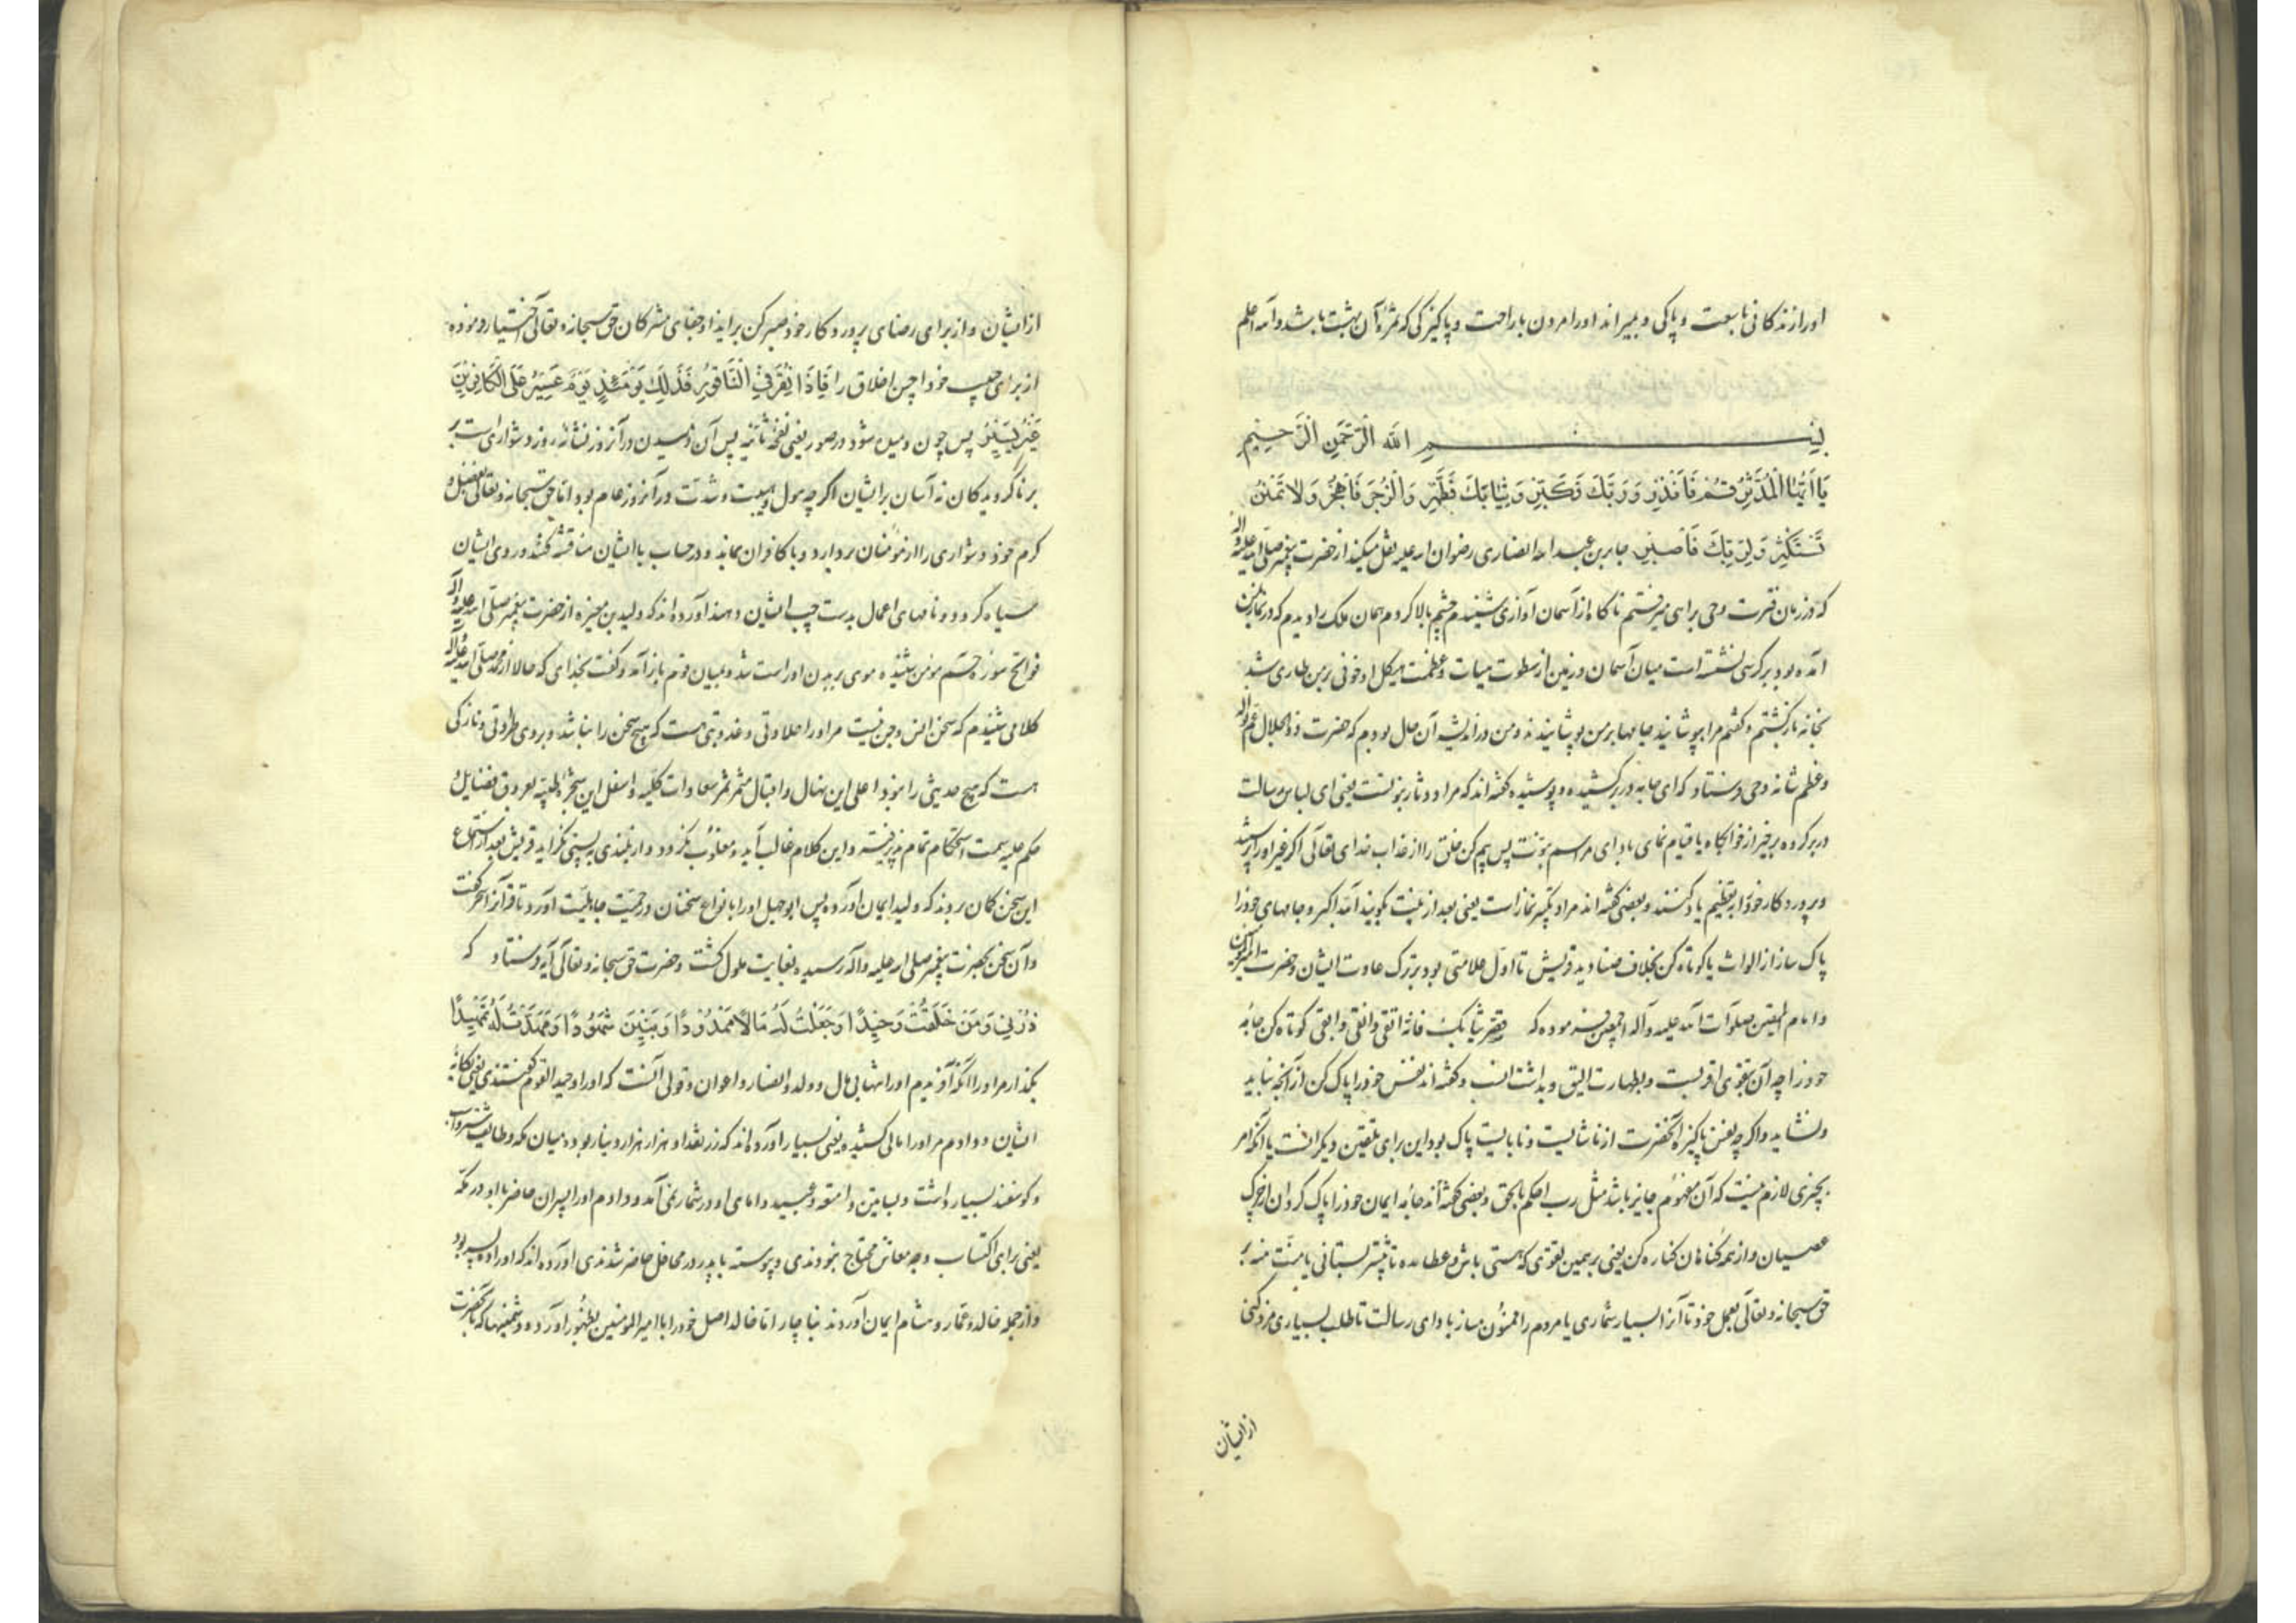 اورا زندکانی با سعت و پاکی و بمیراند اورا مردن با راحت و پاکیزکی که ثمرۀ آن بهشت باشد والله اعلم
بِسْمِ اللّٰهِ الرَّحْمٰنِ الرَّحِیمِ
یَا اَیُّهَا الْمُدَّثِّرُ قُمْ فَاَنْذِرْ وَرَبَّكَ فَكَبِّرْ وَثِیَابَكَ فَطَهِّرْ وَالرُّجْزَ فَاهْجُرْ وَلَا تَمْنُنْ
تَسْتَكْثِرُ وَلِرَبِّكَ فَاصْبِرْ جابر بن عبد الله انصاری رضوان الله علیه نقل میکند از حضرت پیغمبر صلی الله علیه و اله
که در زمان فترت وحی براهی میرفتم ناکاه از آسمان آوازی شنیدم چشم بالا کردم همان ملک را دیدم که در
آمده بود بر کرسی نشسته است میان آسمان و زمین از سطوت هیات و عظمت هیکل او خوفی بر من طاری شد
بخانه بازکشتم و کفتم مرا بپوشانید جامها بر من پوشانیدند و من در اندیشه آن حال بودم که حضرت ذو الجلال عم نواله
و عظم شانه وحی فرستاد که ای جامه در بر کشیده و پوشیده کفته اند که مراد دثار نبوتست یعنی ای لباس رسالت
در بر کرده برخیز از خوابکاه یا قیام نمای بادای مراسم نبوت پس بیم کن خلق را از عذاب خدای تعالی اکر غیر او را پرستند
و پروردکار خود را بتعظیم یاد کنند و بعضی کفته اند مراد تکبیر نماز است یعنی بعد از نیت بکویند الله اکبر و جامهای خود را
پاک ساز از الواث یا کوتاه کن بخلاف صنادید قریش تا اول علامتی بود بر ترک عادت ایشان و حضرت
و امام المتقین صلوات الله علیه و آله اجمعین فرموده که قصر ثیابک فانه اتقی و انقی و ابقی کوتاه کن جامه
خود را چه آن بتقوی اقربست و بطهارت الیق و کفته اند نفس خود را پاک کن از آنچه نباید
و نشاید و اکرچه نفس پاکیزه آنحضرت از ناشایست و نابایست پاک بود این برای تلقین دیکرانست یا آنکه امر
بچیزی لازم نیست که آن مفهوم جایز باشد مثل رب احکم بالحق و بعضی کفته اند جامه ایمان خود را پاک کردان از چرک
عصیان و از همه کناهان کناره کن یعنی بر همین تقوی که هستی باش و عطا مده تا بیشتر بستانی یا منت منه بر
حق سبحانه و تعالی بعمل خود تا آنرا بسیار شماری یا مردم را ممنون مساز بادای رسالت تا طلب بسیاری مزد کنی
از ایشان
از ایشان و از برای رضای پروردکار خود صبر کن بر ایذا و جفای مشرکان حق سبحانه و تعالی اختیار فرموده
از برای حبیب خود احسن اخلاق را فَاِذَا نُقِرَ فِی النَّاقُورِ فَذَلِكَ یَوْمَئِذٍ یَوْمٌ عَسِیرٌ عَلَی الْكَافِرِینَ
غَیْرُ یَسِیرٍ پس چون دمیده شود در صور یعنی نفخه ثانیه پس آن دمیدن در آنروز نشانۀ روز دشواراست بر
بر ناکرویدکان نه آسان بر ایشان اکرچه هول و هیبت و شدت در آنروز عام بود اما حق سبحانه و تعالی بفضل و
کرم خود دشواری را از مؤمنان بردارد و با کافران بماند و در حساب با ایشان مناقشه کند و روی ایشان
سیاه کردد و نامهای اعمال بدست چپ ایشان دهند آورده اند که ولید بن مغیره از حضرت پیغمبر صلی الله علیه و آله
فواتح سوره حم مومن شنیده موی بر بدن او راست شد و بمیان قوم باز آمد و کفت بخدای که حالا از محمد صلی الله علیه و آله
کلامی شنیدم که سخن انس و جن نیست مر او را حلاوتی و عذوبتی هست که هیچ سخن را نباشد و بروی طراوتی و نازکی
هست که هیچ حدیثی را نبود اعلی این نهال و اقبال مثمر ثمر سعادات کلیه و اسفل این شجرۀ طیبه بعروق فضایل و
حکم علیه سمت استحکام تمام پذیرفته و این کلام غالب آید و مغلوب نکردد و از بلندی به پستی نکراید قریش بعد از استماع
این سخن کمان بردند که ولید ایمان آورده پس ابو جهل او را با نواع سخنان در حمیت جاهلیت آورد تا قرآنرا سحر کفت
و آن سخن بحضرت پیغمبر صلی الله علیه و آله رسید و بغایت ملول کشت و حضرت حق سبحانه و تعالی آیه فرستاد که
ذَرْنِی وَمَنْ خَلَقْتُ وَحِیدًا وَجَعَلْتُ لَهُ مَالًا مَمْدُودًا وَبَنِینَ شُهُودًا وَمَهَّدْتُ لَهُ تَمْهِیدًا
بکذار مرا و او را آنکه آفریدم او را تنها بی مال و ولد و انصار و اعوان و قولی آنست که او را وحید القوم کفتندی یعنی یکانۀ
ایشان و دادم مر او را مالی کشیده یعنی بسیار آورده اند که زر نقد او هزار هزار دینار بود و میان مکه و طایف
و کوسفند بسیار داشت و بساتین و امتعه و عبید و امای او در شمار نمی آمد و دادم او را پسران حاضر با او در مکه
یعنی برای اکتساب وجه معاش محتاج نبودندی و پیوسته با پدر در محافل حاضر شدندی آورده اند که او را ده پسر بود
و از جمله خالد و عمار و هشام ایمان آوردند بناچار اما خالد اصل خود را با امیر المومنین بظهور آورد و دشمنیها که